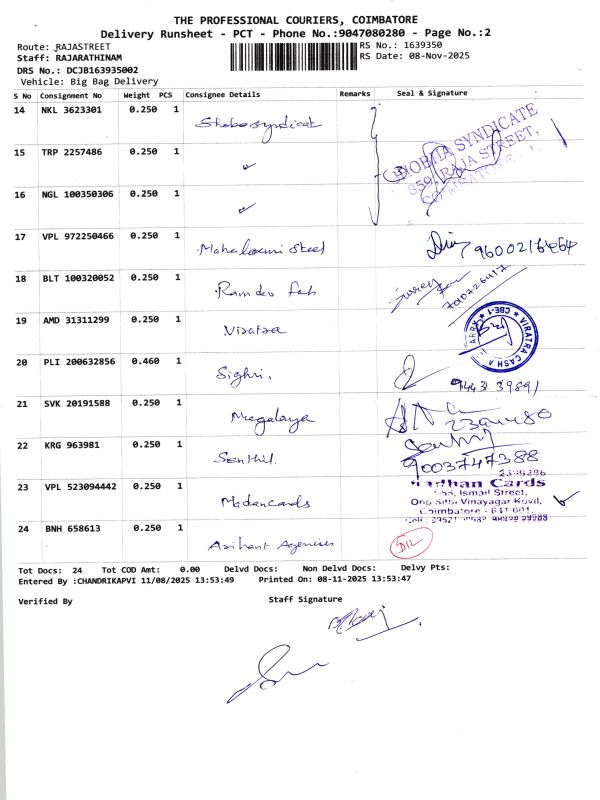 THE PROFESSIONAL COURIERS, COIMBATORE
Delivery Runsheet - PCT - Phone No.:9047080280 - Page No.:2
Route: RAJASTREET
RS No.: 1639350
Staff: RAJARATHINAM
RS Date: 08-Nov-2025
DRS No.: DCJB163935002
Vehicle: Big Bag Delivery
S No Consignment No Weight PCS Consignee Details Remarks Seal & Signature
14 NKL 3623301 0.250 1
SYNDICATE
859, RAJA STREET,
15 TRP 2257486 0.250 1
16 NGL 100350306 0.250 1
17 VPL 972250466 0.250 1
Mahalaxmi Steel
18 BLT 100320052 0.250 1
Ramdev Fab
19 AMD 31311299 0.250 1
Viratra
VIRATRA CASH & CARRY ★ CBE-1 ★
20 PLI 200632856 0.460 1
Sighri.
21 SVK 20191588 0.250 1
Megalaya
22 KRG 963981 0.250 1
Senthil.
9003747388
23 VPL 523094442 0.250 1
Madancards
Cards
Ismail Street,
Vinayagar Kovil,
Coimbatore - 641 001.
24 BNH 658613 0.250 1
Arihant Agencies
D/L
Tot Docs: 24 Tot COD Amt: 0.00 Delvd Docs: Non Delvd Docs: Delvy Pts:
Entered By :CHANDRIKAPVI 11/08/2025 13:53:49 Printed On: 08-11-2025 13:53:47
Verified By Staff Signature